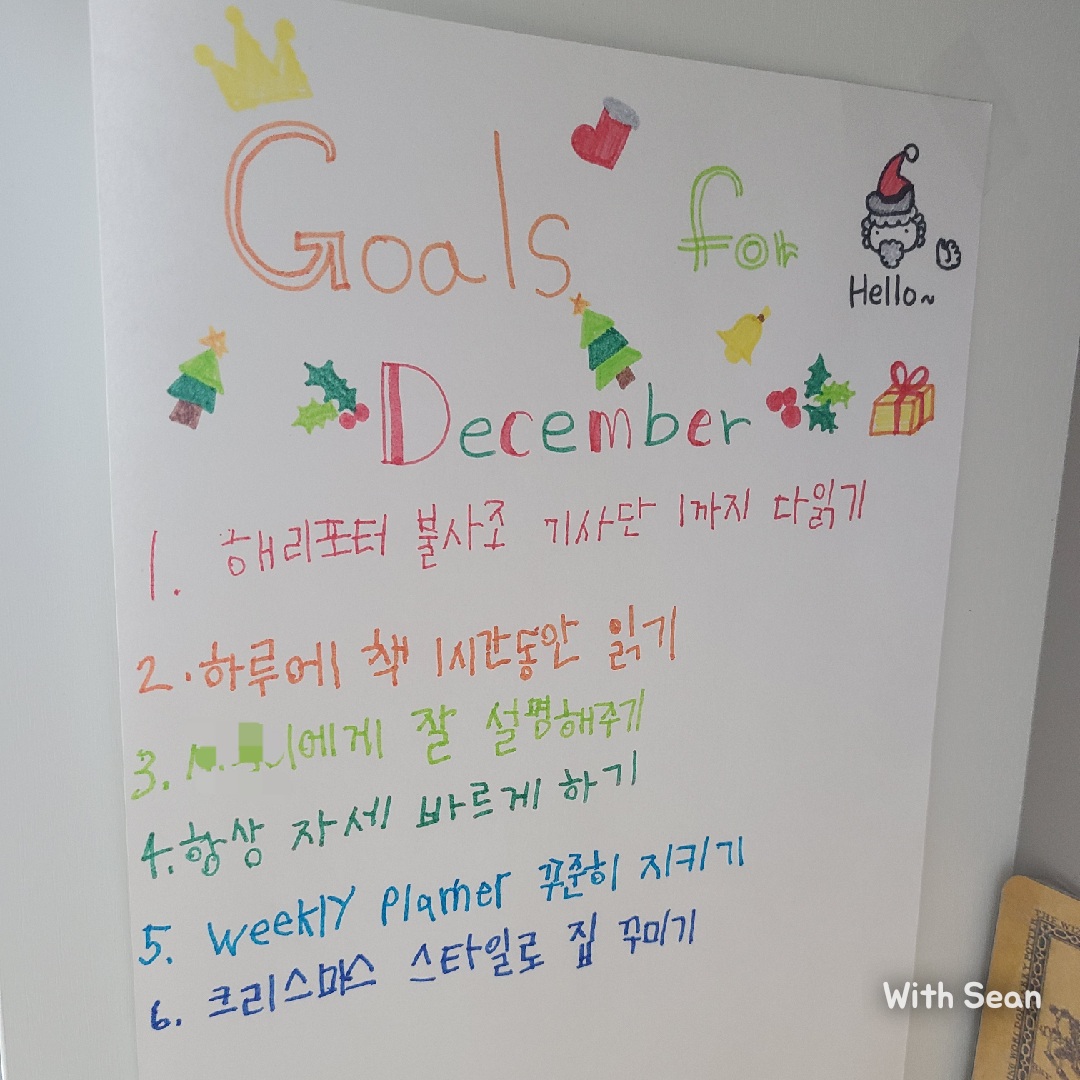 Goals for
Hello~
December
1. 해리포터 불사조 기사단 1까지 다읽기
2. 하루에 책 1시간동안 읽기
3. 에게 잘 설명해주기
4. 항상 자세 바르게 하기
5. Weekly Planner 꾸준히 지키기
6. 크리스마스 스타일로 집 꾸미기
With Sean